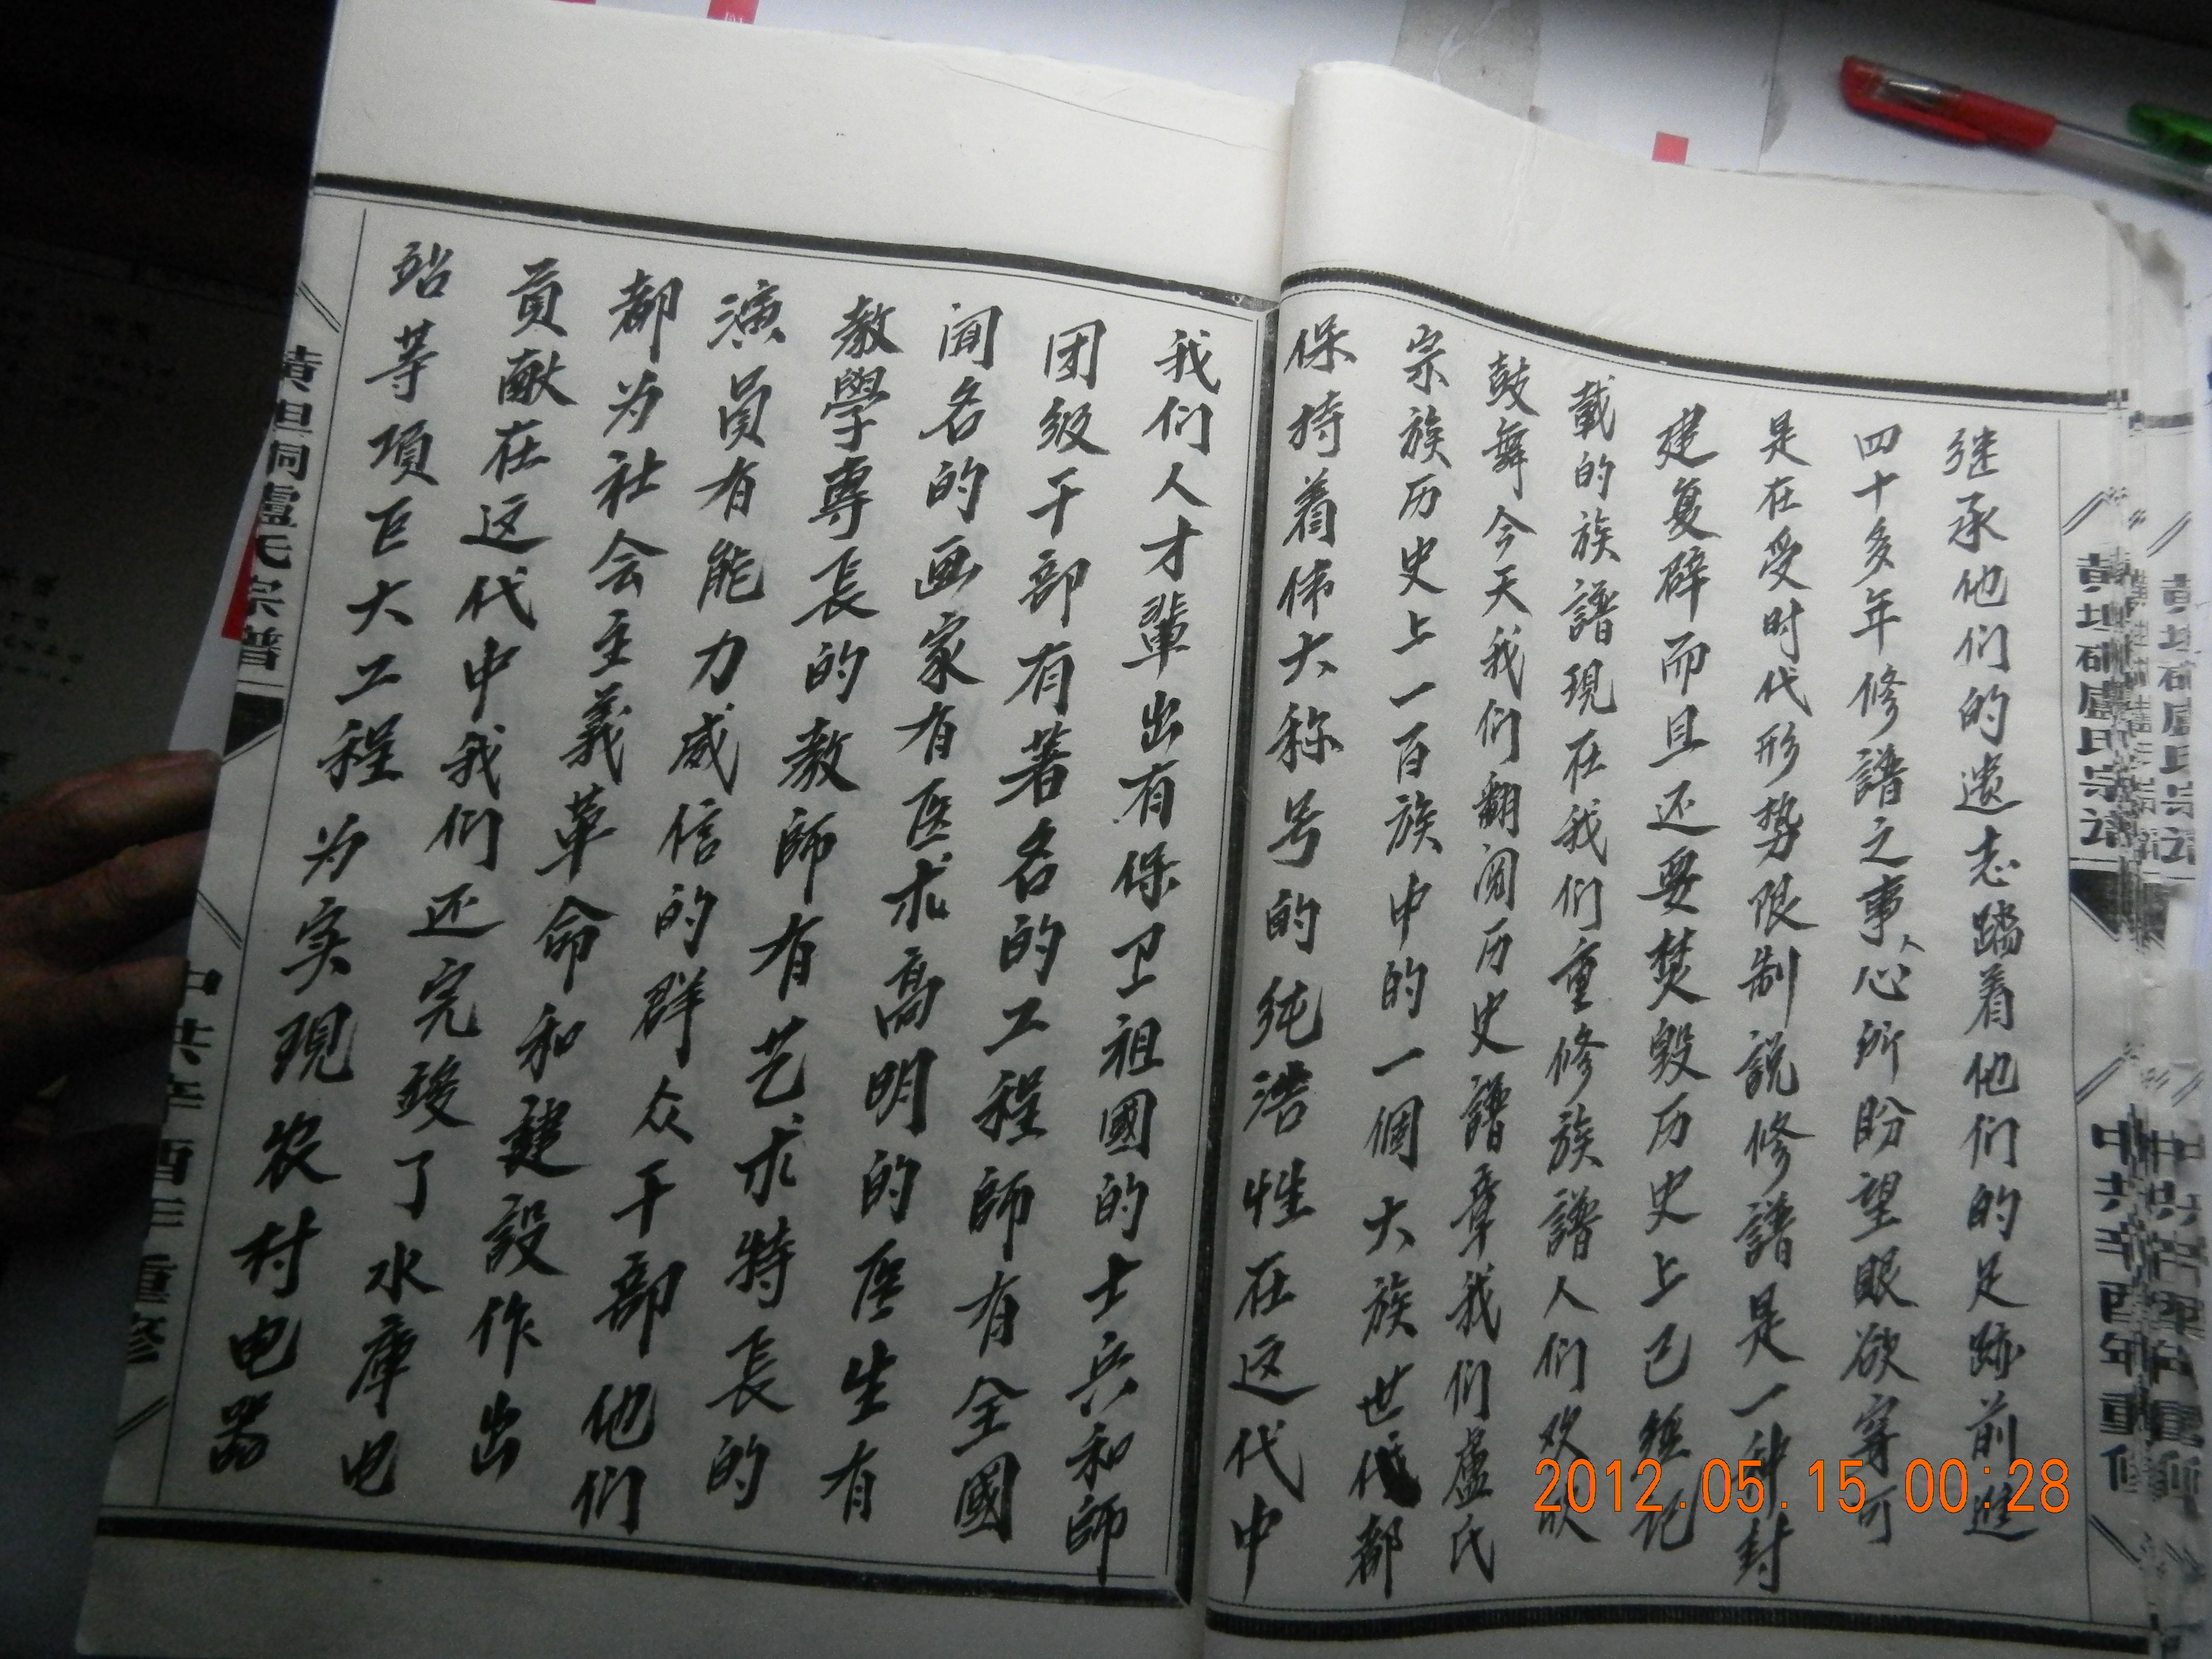 继承他们的遗志踏着他们的足跡前进
四十多年修譜之事人心所盼望眼欲穿可
是在受时代形势限制説修譜是一种封
建复辟而且还要焚毁历史上已經记
載的族譜現在我们重修族譜人们欢欣
鼓舞今天我们翻阅历史譜章我们盧氏
宗族历史上一百族中的一個大族世代都
保持着伟大称号的纯洁性在这代中
我们人才輩出有保卫祖國的士兵和師
团级干部有著名的工程師有全國
闻名的画家有医术高明的医生有
教學專長的教師有艺术特長的
演員有能力威信的群众干部他们
都为社会主義革命和建設作出
貢献在这代中我们还完竣了水庫电
站等項巨大工程为实現农村电器
黄坦硐盧氏宗譜
中共辛酉年重修
黄坦硐盧氏宗譜
中共辛酉年重修
2012.05.15 00:28